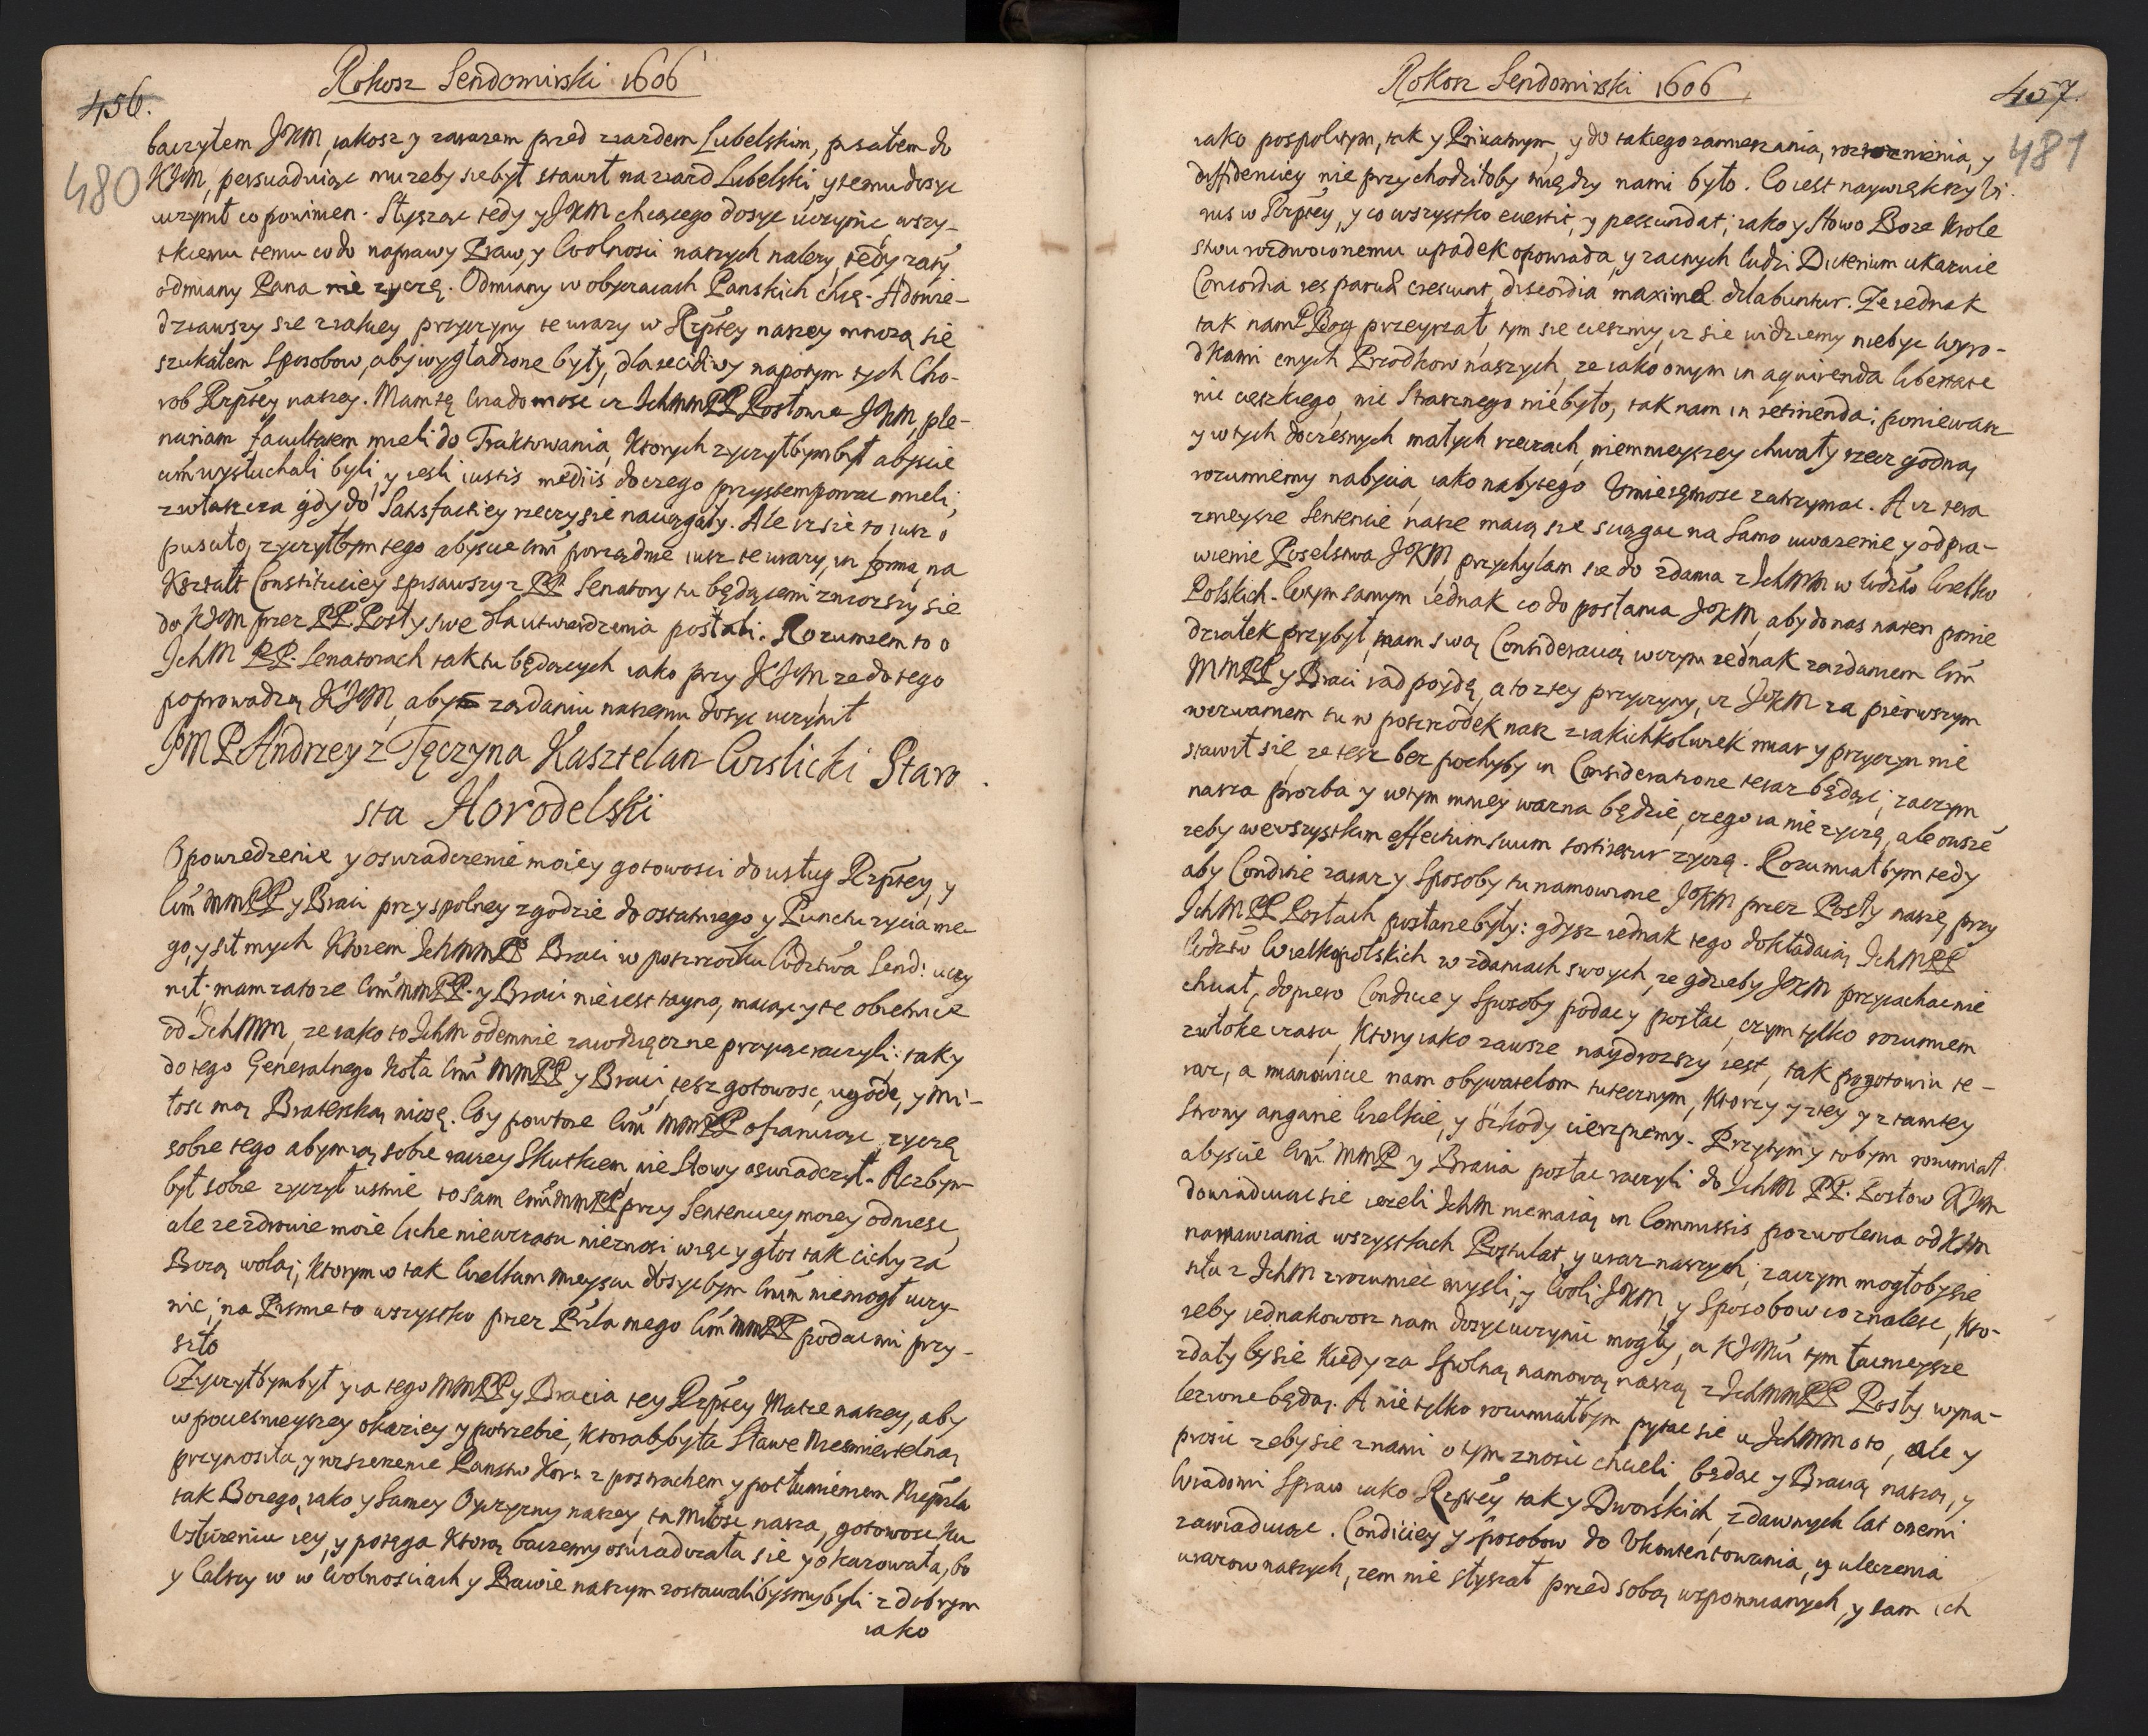 Rokosz Sendomirski 1606
456.
480
baczyłem JKM, iakosz y zarazem przed zjazdem Lubelskim, psałem do
KJM, persuaduiąc mu zeby sie był stawił na ziazd Lubelski y temu dosyc
uczynił co powinien. Słysząc tedy y JKM chcącego dosyc uczynic wszy-
tkiemu temu co do naprawy Praw, y Wolnosci naszych nalezy, tedy zaś
odmiany Pana nie zyczę. Odmiany w obyczaiach Panskich chcę. A dowie-
dziawszy sie z iakiey przyczyny te urazy w Rzptey naszey mnożą sie
szukałem Sposobow, aby wygładzone były, dla recidiwy napotym tych Cho-
rob Rzptey naszey. Mam tę wiadomosc iz Ichmm PP Posłowie JKM, ple-
nariam facultatem mieli do Traktowania, Ktorych zyczyłbym był abyscie
wm wysłuchali byli, y iesli iustis mediis do czego przystempowac mieli,
zwłaszcza gdy do Satisfactiey rzeczy sie naciągały. Ale iz sie to iusz o
pusciło, zyczyłbym tego abyscie Wm porządnie iusz te urazy, in forma, na
Kształt Constituciey spisawszy z PP Senatory tu będącemi zniozszy sie
do KJM przez PP. Posły swe dla utwierdzenia posłali. Rozumiem to o
IchM PP. Senatorach tak tu będących iako przy KJM, ze do tego
poprowadzą KJM, aby zządaniu naszemu dosyc uczynił
JMP Andrzey z Tęczyna Kasztelan Wislicki Staro
sta Horodelski
Opowiedzenie y oswiadczenie moiey gotowosci do usług Rzptey, y
Wm MMPP y Braci przy spolney zgodzie do ostatniego y Punctu zycia me
go, y sił mych Ktorem IchMMPP Braci w poszrodku Wdztwa Send: uczy
nił; mam za to ze Wm MMPP. y Braci nie iest tayno, maiąc y te obietnice
od IchMM, ze iako to IchM odemnie zawdzięczne przyiąc raczyli: tak y
do tego Generalnego Koła Wm MMPP y Braci, tesz gotowosc, ugodę, y Mi-
łosc mą Braterską niosę. Coy powtore Wm MMPP ofiaruiąc, zyczę
sobie tego abym ią sobie raczey Skutkiem, nie Słowy oswiadczył. Aczbym
był sobie zyczył ustnie to sam WmMMPP przy Sentenciey moiey odniesc,
ale ze zdrowie moie liche niewczasu nieznosi więc y głos tak cichy za
Bozą wolą; Ktorym w tak Wielkim mieyscu dosycbym Wmm niemogł uczy-
nic; na Pismie to wszystko przez Przla mego Wm MMPP podac mi przy-
szło
Zyczyłbym był y ia tego MMPP y Bracia tey Rzptey Matce naszey, aby
w pocieszneyszey okaziey y potrzebie, Ktoraby była Sławe Niesmiertelną
przynosiła, y rozszerzenie Panstw Kor: z postrachem y potłumieniem Nieprzla
tak Bozego, iako y Samey Oyczyzny naszey, ta Miłosc nasza, gotowosc Ku
Usłuzeniu iey, y potęga Ktorą baczemy oswiadczała sie y okazowała, bo
y Calszy w w Wolnosciach y Prawie naszym zostawalibysmy byli z dobrym
iako
Rokosz Sendomirski 1606
457.
481
iako pospolitym, tak y Priwatnym, y do takiego zamieszania, rozroznienia, y
diffidenciey nie przychodziłoby między nami było. Co iest naywiększy Vi
rus w Rzptey, y co wszystko euertit, y pessundat; iako y Słowo Boze Krole
stwu rozdwoionemu upadek opowiada, y zacnych ludzi Dicterium ukazuie
Concordia res parvas crescunt, discordia maximae dilabuntur. Ze iednak
tak nam P Bog przeyrzał, tym sie cieszmy, iz sie widziemy niebyc Wyro-
dkami onych Przodkow naszych, ze iako onym in aquirenda libertate
nic cięszkiego, nic Strasznego niebyło, tak nam in retinenda: poniewasz
y w tych doczesnych małych rzeczach, niemnieyszey chwały rzecz godną
rozumiemy nabycia, iako nabytego Umieiętnosc zatrzymac. A iz tera
znieysze Sentencie nasze maią sie sciągac na Samo uwazenie y odpra-
wienie Poselstwa JKM przychylam sie do zdania z IchMM w Wdztw Wielko
Polskich. W tym samym iednak co do posłania JKM, aby do nas na ten ponie
działek przybył, mam swą Consideracią, w czym iednak za zdaniem Wm
MMPP y Braci rad poydę, a to z tey przyczyny, iz JKM za pierwszym
wezwaniem tu w poszrodek nasz z iakichkolwiek miar y przyczyn nie
stawił sie, ze tesz bez pochyby in Consideratione teraz będąc; zaczym
nasza prozba y w tym mniey wazna będzie, czego ia nie zyczę, ale owsze
zeby we wszystkim effectum suum sortiretur zyczę. Rozumiałbym tedy
aby Condicie zaraz y Sposoby tu namowione JKM przez Posły nasze przy
IchMPP Posłach posłane były: gdysz iednak tego dokładaią IchMPP
Wdztw Wielkopolskich w zdaniach swoych, ze gdzieby JKM przyiachac nie
chciał, dopiero Condicie y Sposoby podac y posłac, czym tylko rozumiem
zwłokę czasu, Ktory iako zawsze naydrozszy iest, tak pogotowiu te-
raz, a mianowicie nam obywatelom tutecznym, Ktorzy y z tey y z tamtey
Strony angarie Wielkie, y Szkody cierpiemy. Przytym y to bym rozumiał
abyscie Wm MMP y Bracia posłac raczyli do IchM PP. Posłow KJM
dowiaduiac sie iezeli IchM niemaią in Commissis pozwolenia od KJM
namawiania wszystkich Postulat, y uraz naszych; zaczym mogłoby sie
siła z IchM zrozumiec mysli, y Woli JKM, y Sposobow co znalesc, Kto-
zeby iednakowosz nam dosyc uczynic mogły, a KJMci tym łacnieysze
zdały by sie Kiedy za Spolną namową naszą z IchMMPP Posły wyna-
lezione będą. A nie tylko rozumiałbym pytac sie u IchMM o to, ale y
prosic zeby sie z nami o tym znosic chcieli, bądac y Bracią naszą, y
Wiadomi Spraw iako Rzptey tak y Dworskich, z dawnych lat onemi
zawiaduiac. Condiciey y Sposobow do Ukontentowania, y uleczenia
urazow naszych, zem nie słyszał przed sobą wspomnianych, y sam ich